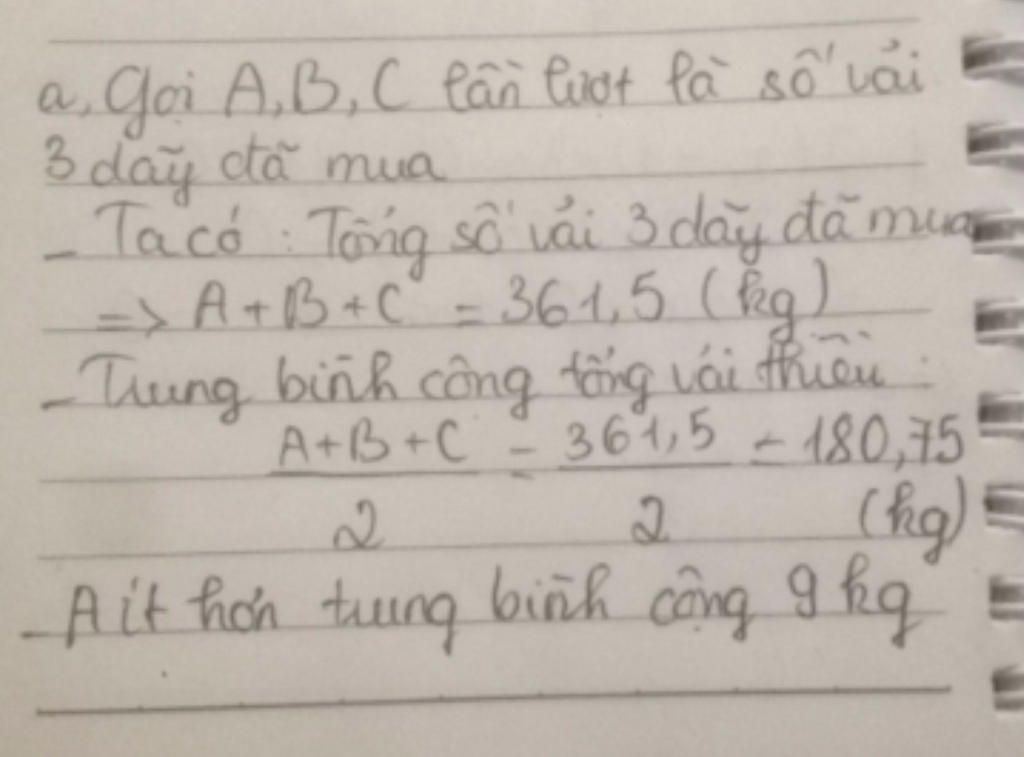 a, Gọi A, B, C lần lượt là số vải
3 dãy đã mua
- Ta có : Tổng số vải 3 dãy đã mua
=> A + B + C = 361,5 (kg)
- Trung bình cộng tổng vải thiều :
A+B+C = 361,5 = 180,75
2 2 (kg)
- A ít hơn trung bình cộng 9 kg